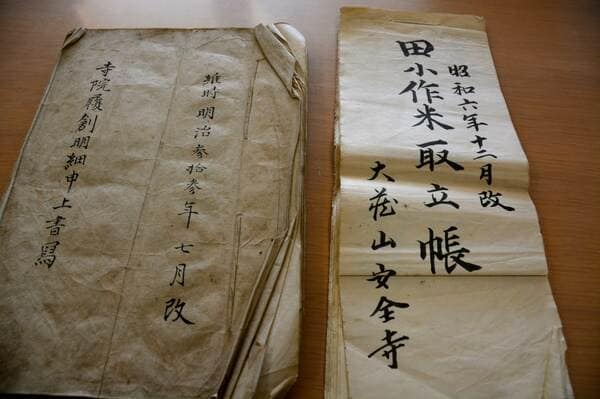 維時明治参拾参年七月改
寺院履創明細申上書寫
昭和六年十二月改
田小作米取立帳
大蔵山安全寺